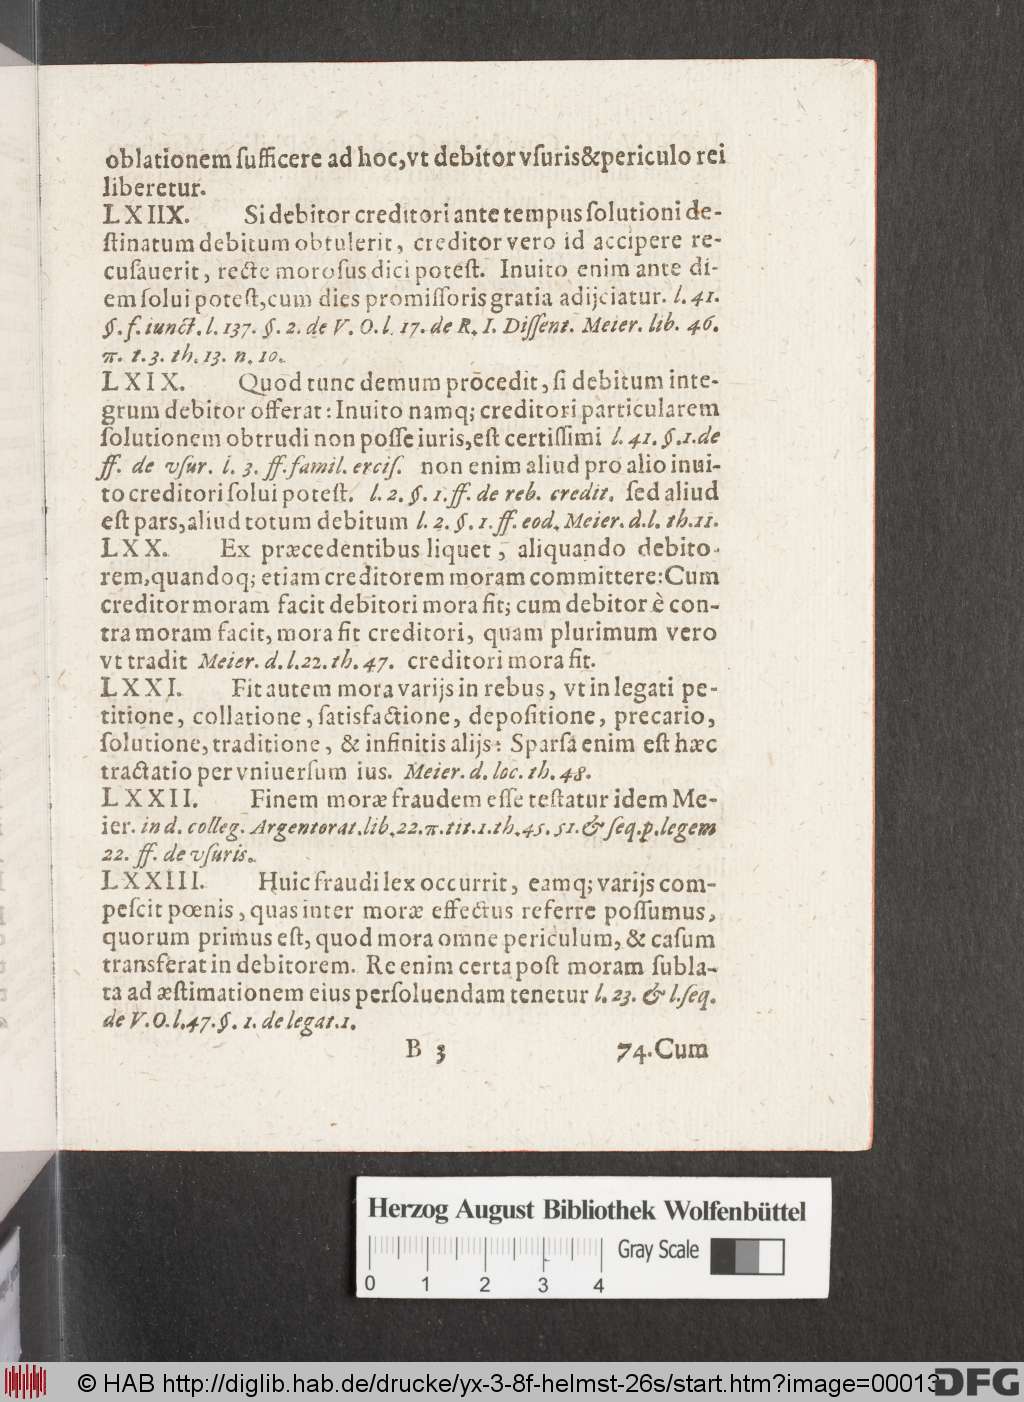 oblationem ſufficere ad hoc,vt debitor vſuris&periculo rei
liberetur.
LXIIX. Si debitor creditori ante tempus ſolutioni de-
ſtinatum debitum obtulerit, creditor vero id accipere re-
cuſauerit, recte moroſus dici poteſt. Inuito enim ante di-
em ſolui poteſt,cum dies promiſſoris gratia adijciatur. l. 41.
§. f. iunct. l. 137. §. 2. de V. O. l. 17. de R. I. Diſſent. Meier. lib. 46.
π. t. 3. th. 13. n. 10.
LXIX. Quod tunc demum prōcedit, ſi debitum inte-
grum debitor offerat: Inuito namq; creditori particularem
ſolutionem obtrudi non poſſe iuris,eſt certiſſimi l. 41. §.1.de
ff. de vſur. l. 3. ff. famil. erciſ. non enim aliud pro alio inui-
to creditori ſolui poteſt. l. 2. §. 1. ff. de reb. credit. ſed aliud
eſt pars,aliud totum debitum l. 2. §. 1. ff. eod. Meier. d.l. th.11.
LXX. Ex præcedentibus liquet, aliquando debito-
rem,quandoq; etiam creditorem moram committere:Cum
creditor moram facit debitori mora fit; cum debitor è con-
tra moram facit, mora fit creditori, quam plurimum vero
vt tradit Meier. d. l.22. th. 47. creditori mora fit.
LXXI. Fit autem mora varijs in rebus, vt in legati pe-
titione, collatione, ſatisfactione, depoſitione, precario,
ſolutione, traditione, & infinitis alijs: Sparſa enim eſt hæc
tractatio per vniuerſum ius. Meier. d. loc. th. 48.
LXXII. Finem moræ fraudem eſſe teſtatur idem Me-
ier. in d. colleg. Argentorat.lib.22.π.tit.1.th.45. 51.& ſeq.p.legem
22. ff. de vſuris.
LXXIII. Huic fraudi lex occurrit, eamq; varijs com-
peſcit pœnis, quas inter moræ effectus referre poſſumus,
quorum primus eſt, quod mora omne periculum, & caſum
transferat in debitorem. Re enim certa poſt moram ſubla-
ta ad æſtimationem eius perſoluendam tenetur l. 23. & l.ſeq.
de V.O.l.47.§. 1. de legat.1.
B 3 74.Cum
Herzog August Bibliothek Wolfenbüttel
Gray Scale
0 1 2 3 4
© HAB http://diglib.hab.de/drucke/yx-3-8f-helmst-26s/start.htm?image=00013
DFG